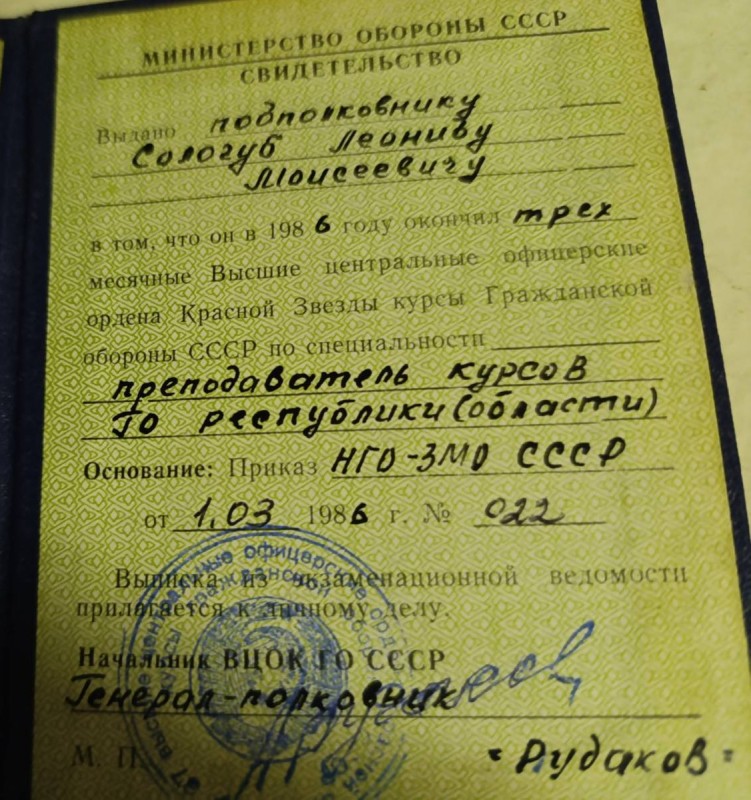 МИНИСТЕРСТВО ОБОРОНЫ СССР
СВИДЕТЕЛЬСТВО
Выдано подполковнику
Сологуб Леониду
Моисеевичу
в том, что он в 1986 году окончил трех
месячные Высшие центральные офицерские
ордена Красной Звезды курсы Гражданской
обороны СССР по специальности
преподаватель курсов
ГО республики (области)
Основание: Приказ НГО-ЗМО СССР
от 1.03 1986 г. № 022
Выписка из экзаменационной ведомости
прилагается к личному делу.
Начальник ВЦОК ГО СССР
Генерал-полковник
М. П. = Рудаков =